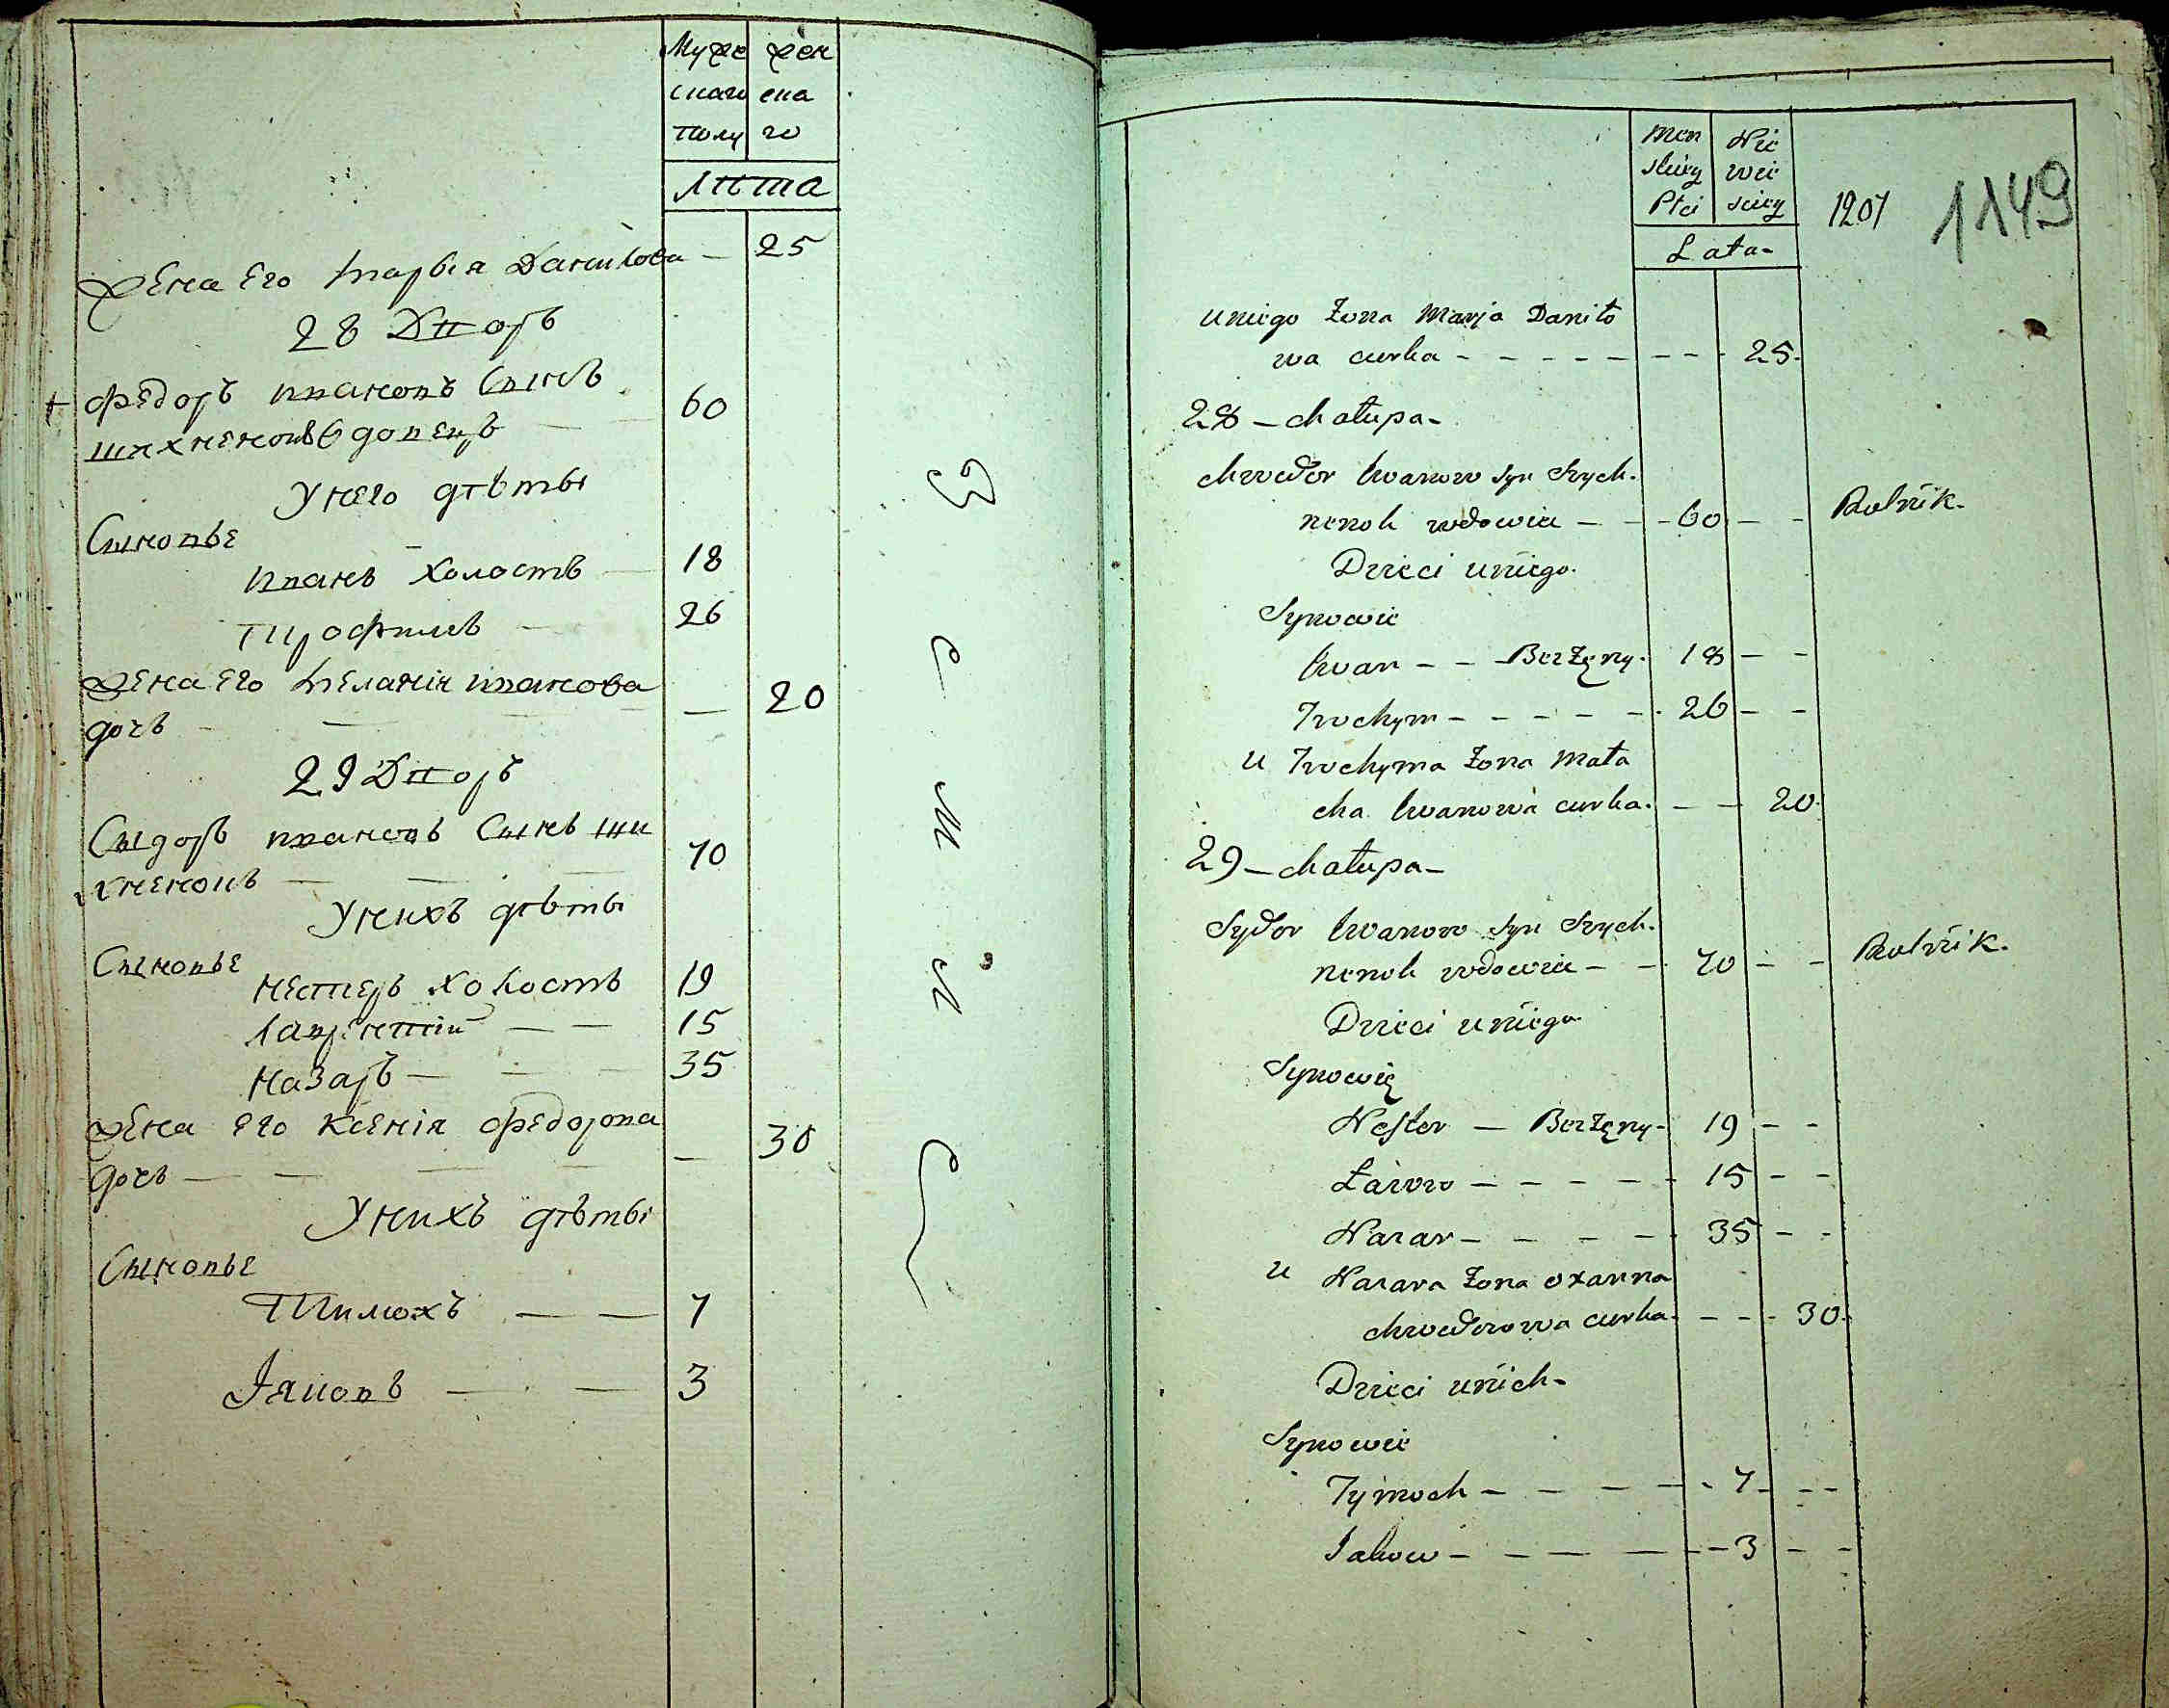 Муже
скаго
полу
жен
ска
го
лѣта
Жена его Марья Данилова — 25
28 Дворъ
+ Федоръ ивановъ Сынъ
шихненокъ вдовецъ — 60
У него дѣти
Сыновье
иванъ холостъ — 18
трофимъ — 26
Жена его Меланія иванова
дочь — — 20
29 Дворъ
Сыдоръ ивановъ Сынъ ши
хненокъ — — — 70
У нихъ дѣти
Сыновье
нестеръ холостъ 19
лаврентій — — 15
назаръ — — — 35
Жена его Ксенія федорова
дочь — — — 30
У нихъ дѣти
Сыновье
Тимохъ — — 7
Іяковъ — — 3
З
е
м
л
Men
skiey
Płci
Nie
wie
sciey
Lata-
1207
1149
u niego Żona Marja Daniło
wa curka - - - - - - - - - 25-
28 – chałupa-
chwedor Iwanow syn Szych-
nenok wdowiec - - - 60 - - Rolnik.
Dzieci u niego.
Synowie
Iwan - - - Bezżęny. 18 - -
Trochym - - - - - - 26 - -
u Trochyma Żona Mała
cha Iwanowa curka. - - 20.
29 – chałupa-
Sydor Iwanow syn Szych-
nenok wdowiec - - 70 - - Rolnik.
Dzieci u niego
Synowie
Nester — Bezżęny - 19 - -
Ławro - - - - - - 15 - -
Nazar - - - - - 35 - -
u Nazara Żona oxanna
chwedorowa curka. - - - 30.
Dzieci u nich-
Synowie
Tymoch - - - - - - 7 - - -
Jakow - - - - - - 3 - -